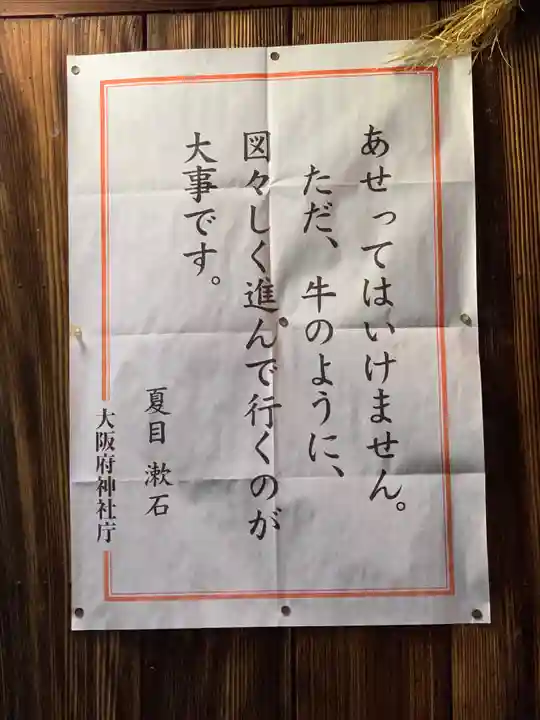 あせってはいけません。
ただ、牛のように、
図々しく進んで行くのが
大事です。
夏目 漱石
大阪府神社庁